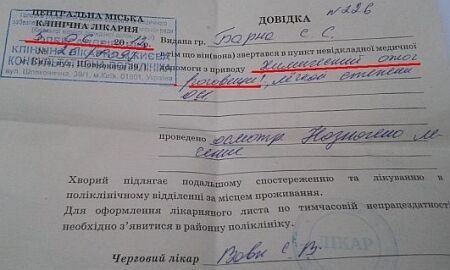 ЦЕНТРАЛЬНА МІСЬКА
КЛІНІЧНА ЛІКАРНЯ
Київ, вул. Шовковична, 39/1
вул. Шовковична, 39/1, м.Київ, 01601, Україна
ДОВІДКА №226
Видана гр. Барна С. С.
тім що він(вона) звертався в пункт невідкладної медичної
допомоги з приводу Химический ожог
роговицы!, лёгкой степени
проведено осмотр. Назначено ле
чение
Хворий підлягає подальшому спостереженню та лікуванню в
поліклінічному відділенні за місцем проживання.
Для оформлення лікарняного листа по тимчасовій непрацездатності
необхідно з'явитися в районну поліклініку.
Черговий лікар
ЛІКАР